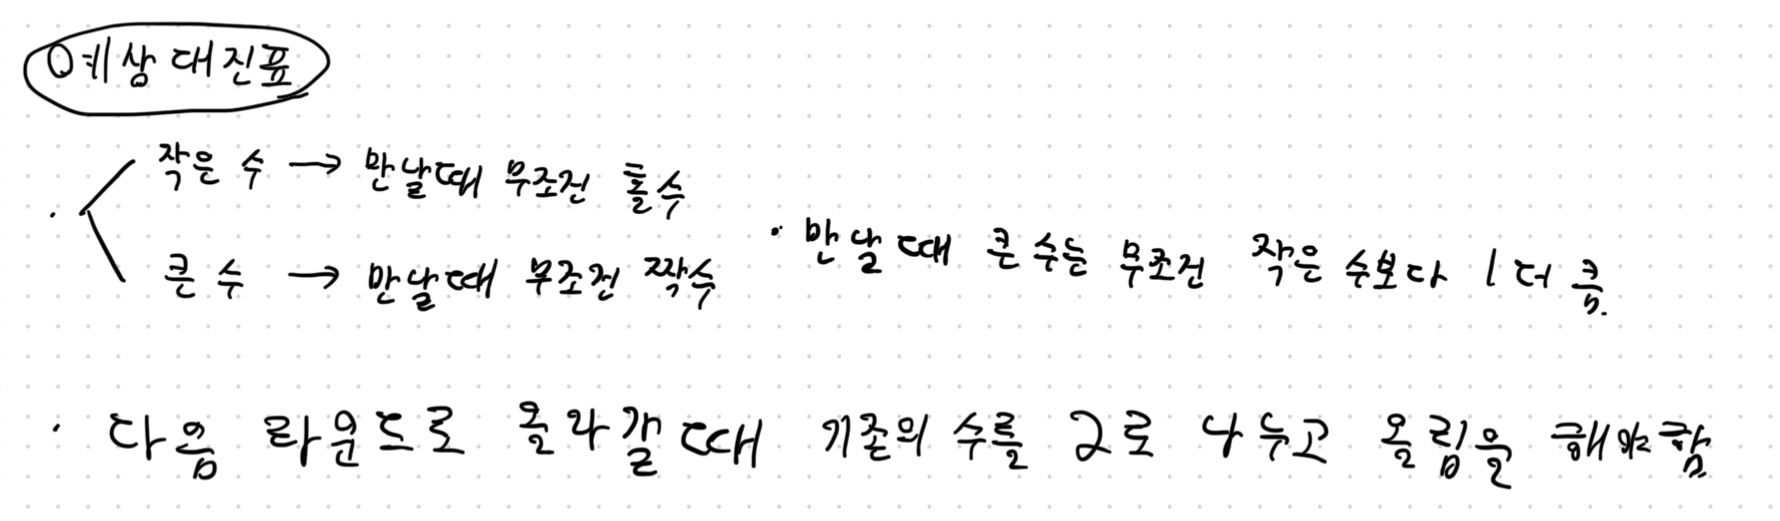 예상 대진표
작은 수 → 만날때 무조건 홀수
큰 수 → 만날때 무조건 짝수
· 만날때 큰 수는 무조건 작은 수보다 1 더 큼.
· 다음 라운드로 올라갈때 기존의 수를 2로 나누고 올림을 해야함.